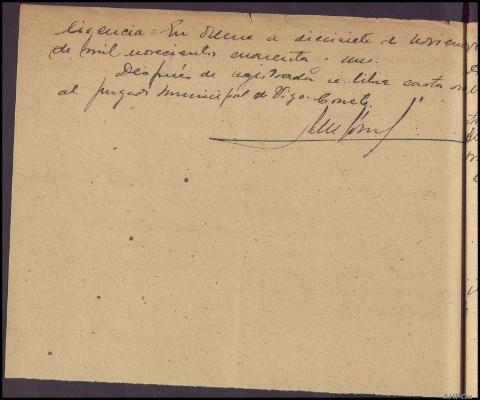 ligencia = En Orense a diecisiete de Noviem
de mil novecientos cuarenta y uno.
Después de registrada se libra carta or
al juzgado Municipal de Vigo. Consta.